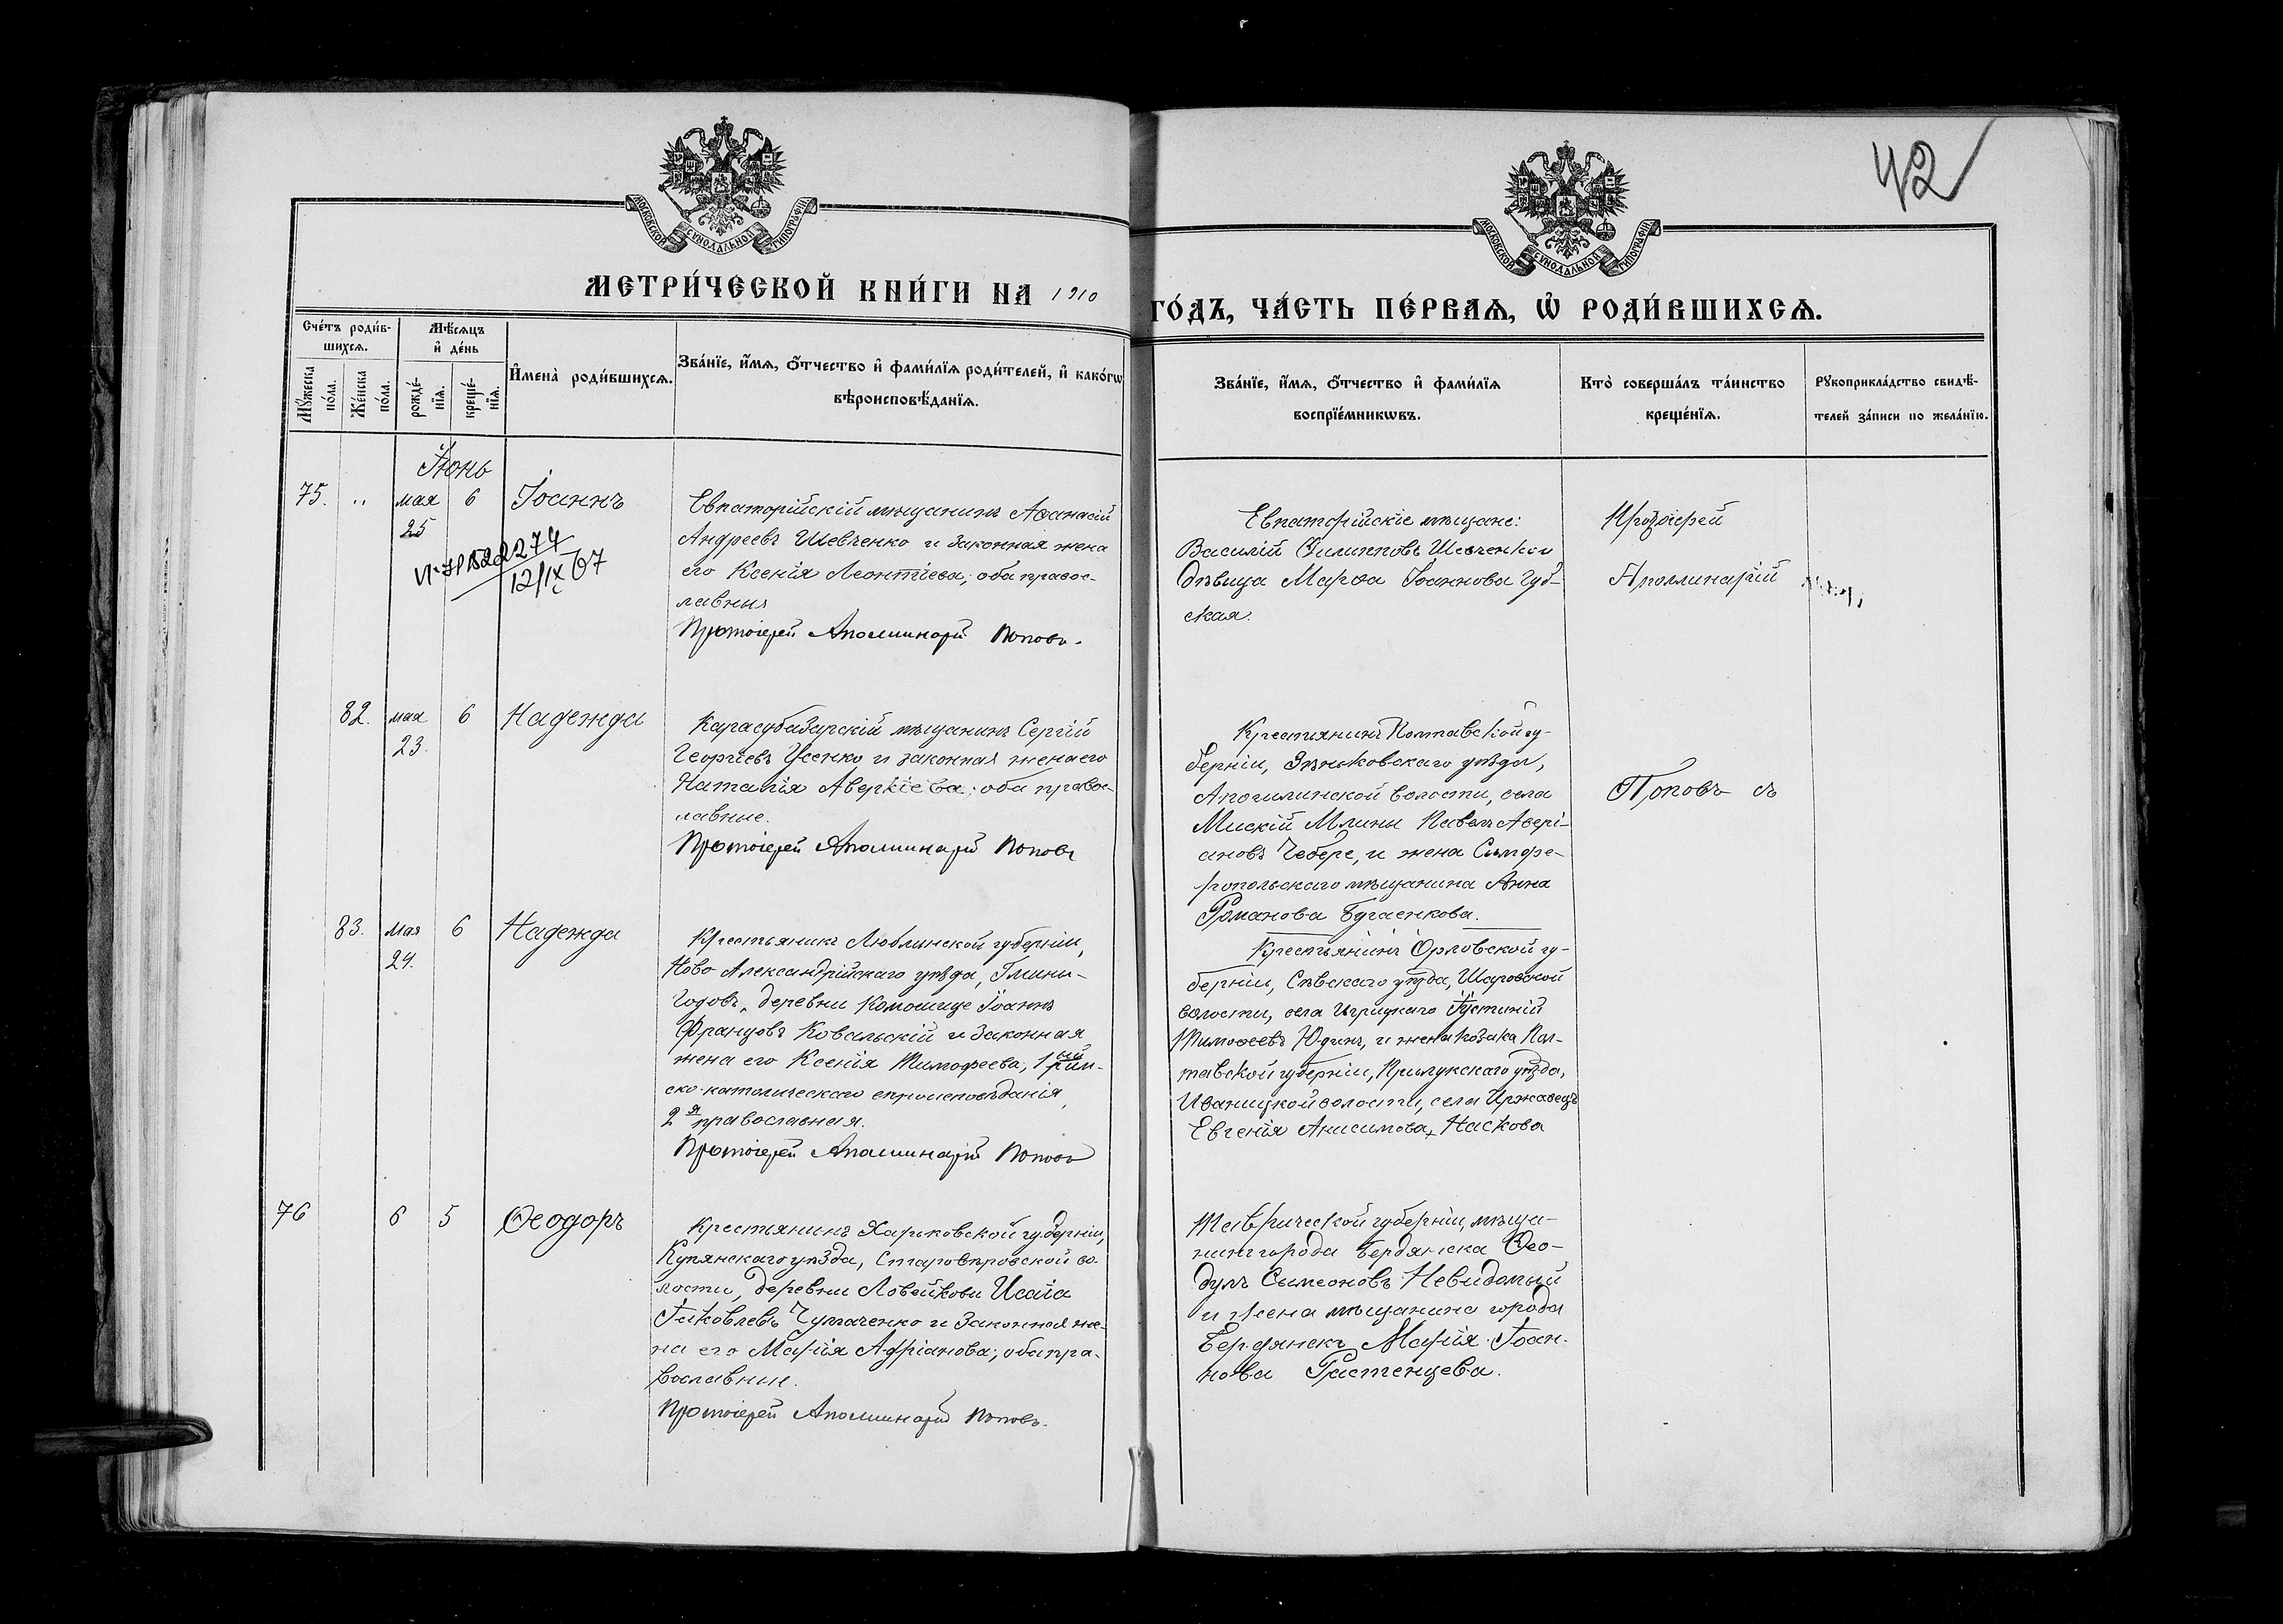 42
МОСКОВСКОЙ СУНОДАЛЬНОЙ ТИПОГРАФІИ
МОСКОВСКОЙ СУНОДАЛЬНОЙ ТИПОГРАФІИ
МЕТРИ́ЧЕСКОЙ КНИ́ГИ НА 1910
ГО́ДЪ, ЧА́СТЬ ПЕ́РВАѦ, Ѡ҆ РОДИ́ВШИХСѦ.
Сче́тъ роди́в-
шихсѧ.
Мѣ́сѧцъ
и҆ де́нь
Мꙋ́жеска
по́ла.
Же́нска
по́ла.
рожде́-
нїѧ.
креще́-
нїѧ.
И҆мена̀ роди́вшихсѧ.
Зва́нїе, и҆́мѧ, ѻ҆́тчество и҆ фами́лїѧ роди́телей, и҆ како́гѡ
вѣроисповѣ́данїѧ.
Зва́нїе, и҆́мѧ, ѻ҆́тчество и҆ фами́лїѧ
воспрїе́мникѡвъ.
Кто̀ соверша́лъ та́инство
креще́нїѧ.
Рꙋкоприкла́дство свидѣ́-
телей за́писи по жела́нїю.
Іюнь
75. " мая 6 Іоаннъ
25
12/IX 67
Евпаторійскій мѣщанинъ Аѳанасій
Андреевъ Шевченко и законная жена
его Ксенія Леонтіева, оба правос-
лавные
Протоіерей Аполлинарій Поповъ.
Евпаторійскіе мѣщане:
Василій Филипповъ Шевченко и
дѣвица Марѳа Іоаннова Губ-
ская.
Протоіерей
Аполлинарій
82. мая 6 Надежда
23.
Карасубазарскій мѣщанинъ Сергій
Георгіевъ Усенко и законная жена его
Наталія Аверкіева; оба правос-
лавные.
Протоіерей Аполлинарій Поповъ
Крестьянинъ Полтавской гу-
берніи, Зѣньковскаго уѣзда,
волости, села
Млины Павелъ Авері-
ановъ Чебере, и жена Симфе-
ропольскаго мѣщанина Анна
Романова Бугаенкова.
Поповъ съ
83. мая 6 Надежда
24.
Крестьянинъ Люблинской губерніи,
Ново Александрійскаго уѣзда, Гмины-
Годовъ, деревни Коможице Іоаннъ
Францовъ Ковальскій и законная
жена его Ксенія Тимофеева, 1ый рим-
ско-католическаго вѣроисповѣданія,
2я православная.
Протоіерей Аполлинарій Поповъ
Крестьянинъ Орловской гу-
берніи, Сѣвскаго уѣзда, Шаровской
волости, села Игрицкаго Іустиній
Тимоѳеевъ Юдинъ, и жена козака Пол-
тавской губерніи, Прилукскаго уѣзда,
Иваницкой волости, села Иржавецъ
Евгенія Анисимова Наскова
76 6 5 Ѳеодоръ
Крестьянинъ Харьковской губерніи,
Купянскаго уѣзда, Старовѣровской во-
лости, деревни Ловейкови Исаія
Іаковлевъ Чумаченко и законная же-
на его Марія Адріанова; оба пра-
вославные.
Протоіерей Аполлинарій Поповъ.
Таврической губерніи, мѣща-
нинъ города Бердянска Ѳео-
дулъ Симеоновъ Невидомый
и жена мѣщанина города
Бердянскъ Марія Іоан-
нова Растенцева.